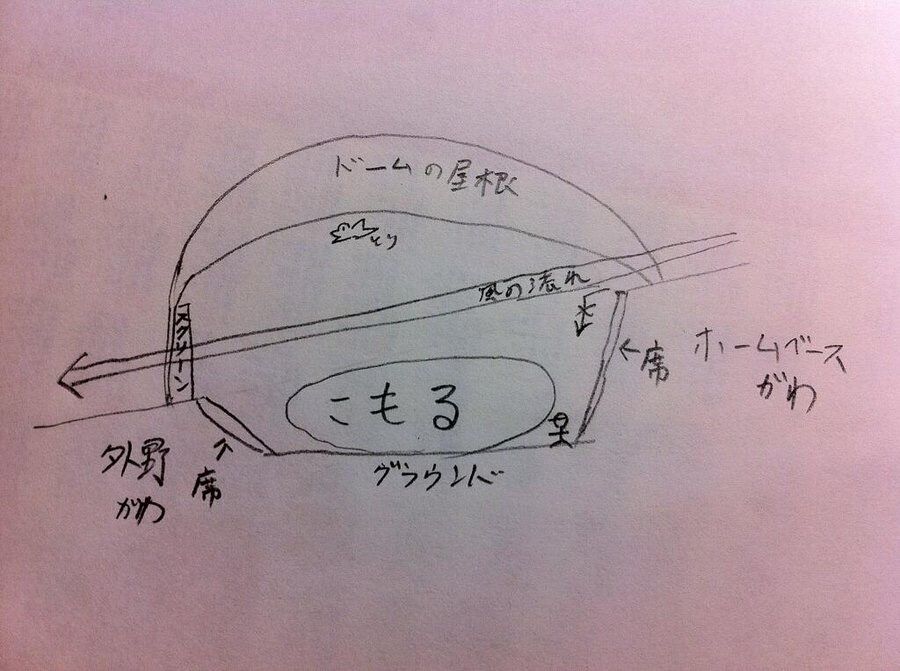 ドームの屋根
とり
風の流れ
スクリーン
←席
ホームベース
がわ
こもる
外野
がわ
席
グラウンド